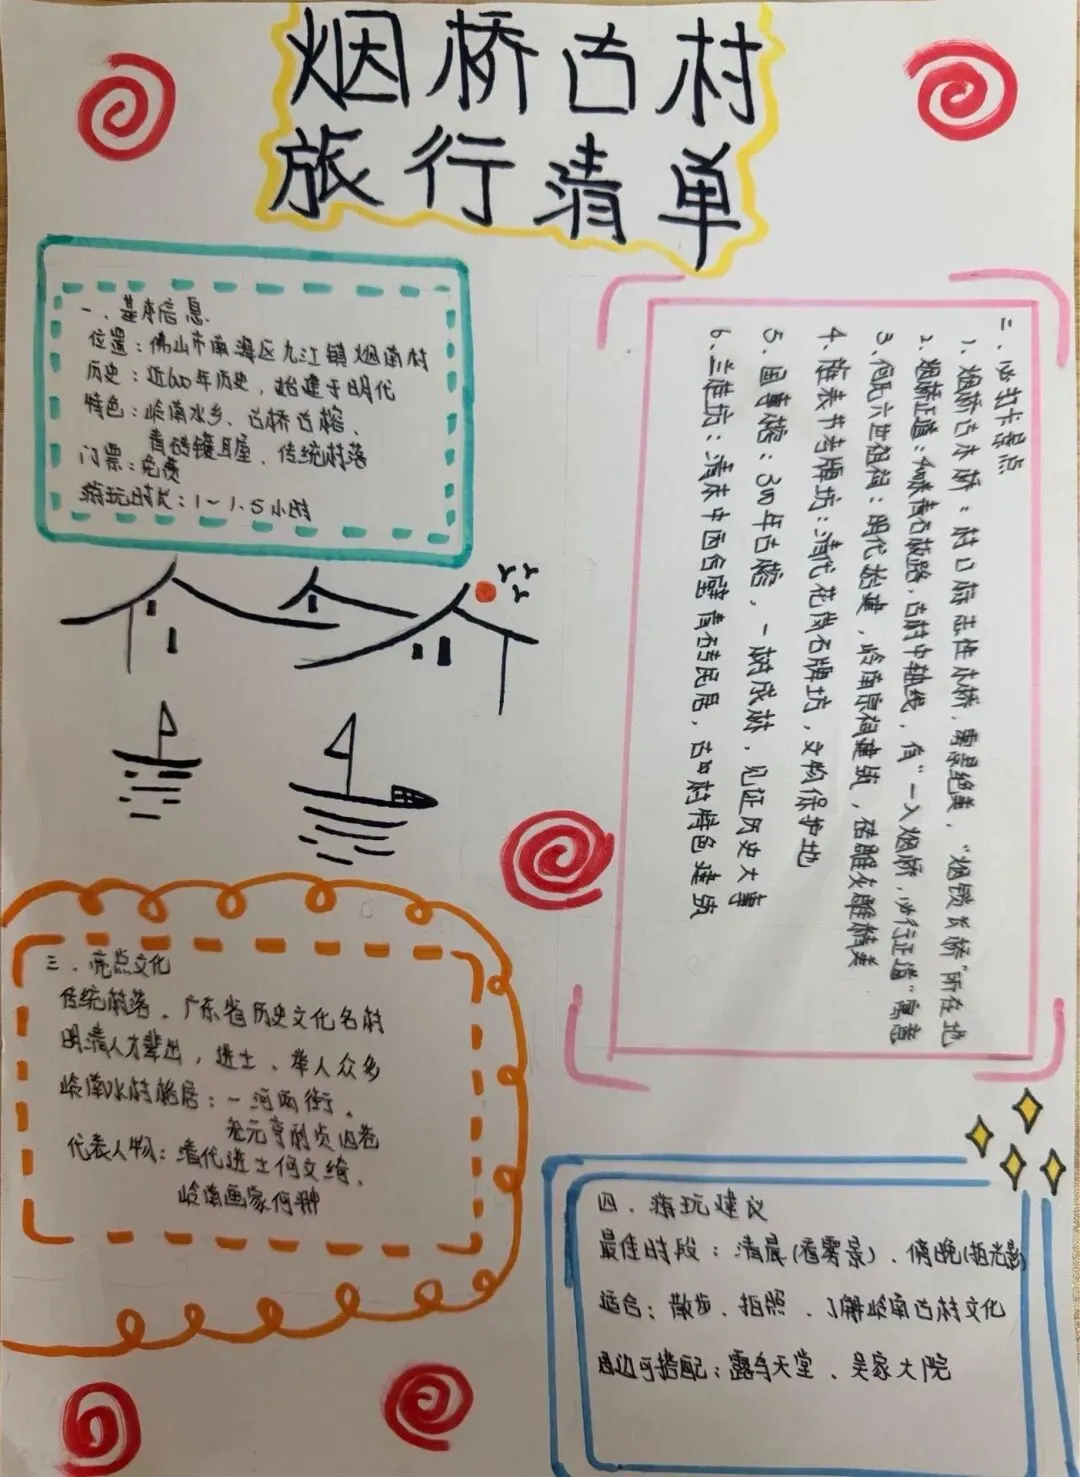 烟桥古村
旅行清单
一、基本信息
位置：佛山市南海区九江镇烟南村
历史：近600年历史，始建于明代
特色：岭南水乡、古桥古榕、
青砖镬耳屋、传统村落
门票：免费
游玩时长：1～1.5小时
二、必打卡景点
1、烟桥古木桥：村口标志性木桥，雾景绝美，“烟锁长桥”所在地
2、烟桥正道：400米青石板路，古村中轴线，有“一入烟桥，必行正道”寓意
3、何氏六世祖祠：明代始建，岭南原构建筑，砖雕灰雕精美
4、旌表节孝牌坊：清代花岗石牌坊，文物保护地
5、国事榕：300年古榕，一树成林，见证历史大事
6、兰桂坊：清末中西合璧青砖民居，古村特色建筑
三、亮点文化
传统村落、广东省历史文化名村
明清人才辈出，进士、举人众多
岭南水村格局：一河两街、
元亨利贞四巷
代表人物：清代进士何文绮、
岭南画家何翀
四、游玩建议
最佳时段：清晨(看雾景)、傍晚(拍光影)
适合：散步、拍照、了解岭南古村文化
周边可搭配：露台天堂、吴家大院